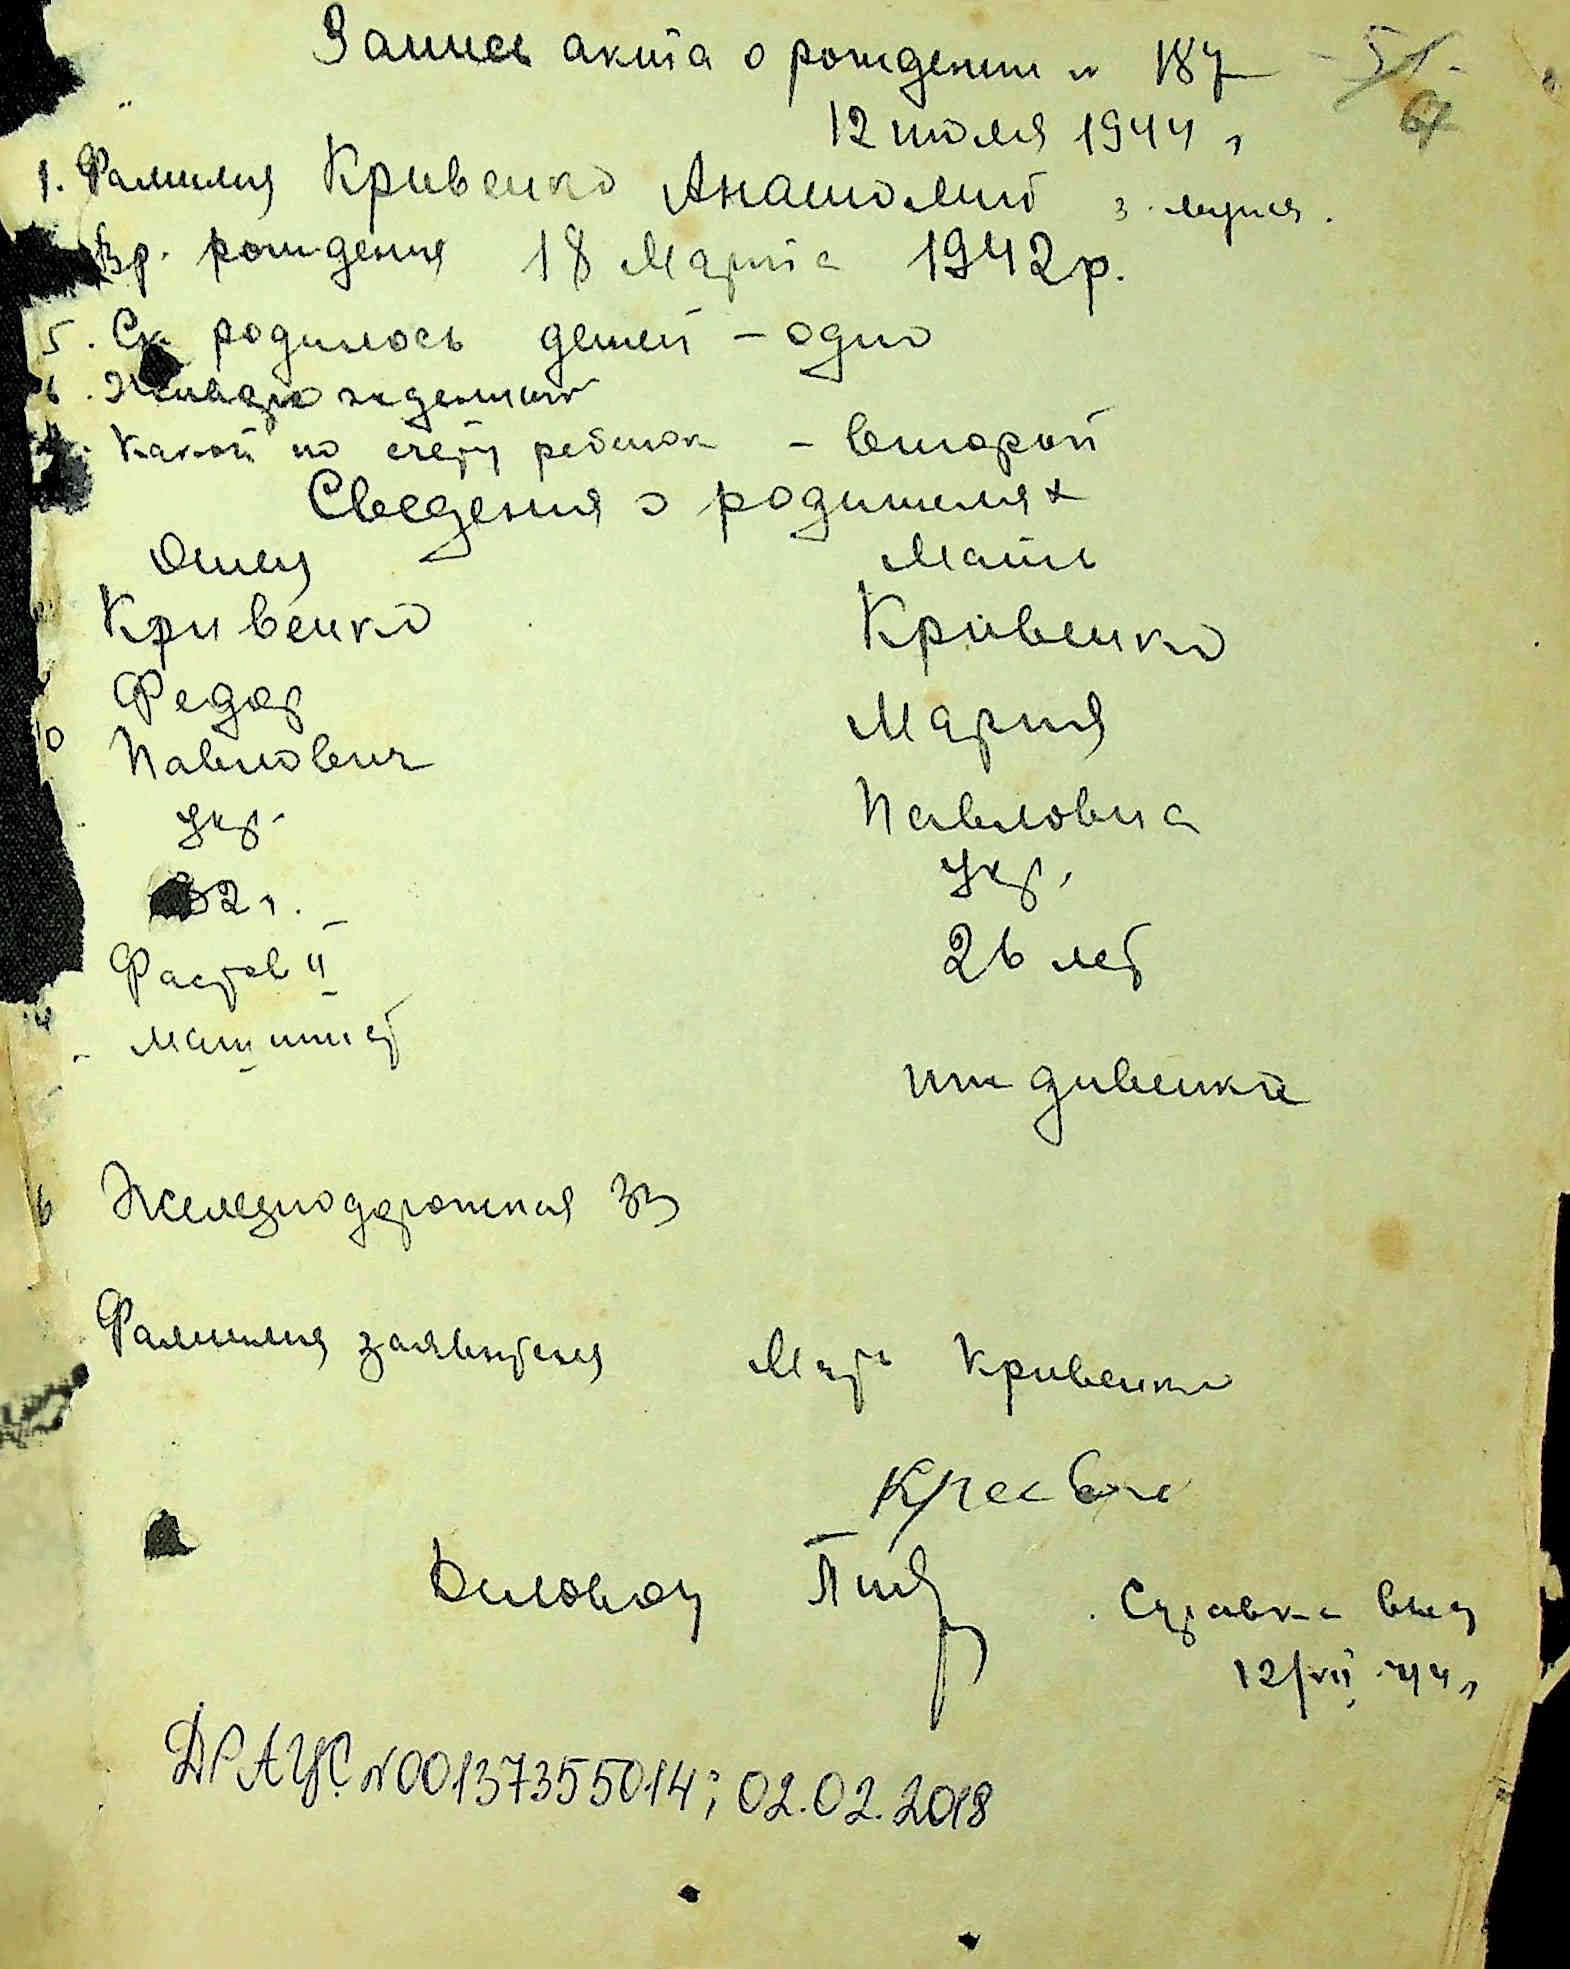 Запись акта о рождении N 187
- 51 -
67
12 июля 1944 г
1. Фамилия Кривенко Анатолий 3.
Вр. рождения 18 Марта 1942 р.
5. Ск. родилось детей - одно
6. Живорожденный
Какой по счету ребенок - второй
Сведения о родителях
Отец Мать
Кривенко Кривенко
Федор Мария
10 Павлович Павловна
Укр. Укр.
32 г. 26 лет
Фастов II
машинист иждивенка
6 Железнодорожная 33
Фамилия заявителя Мать Кривенко
Деловод
Справка выд
12/VII 44 г
ДРАЦС N 00137355014; 02.02.2018